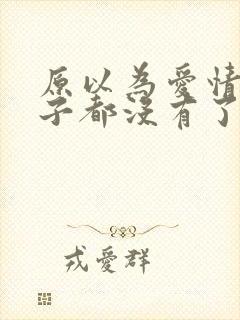 原以為愛情
子都沒有了
戎愛群